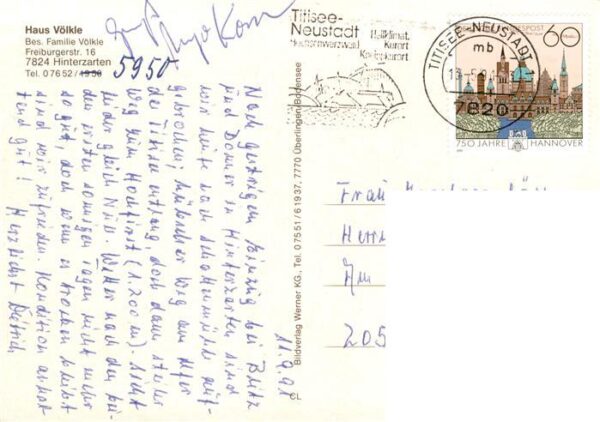 Haus Völkle
Bes. Familie Völkle
Freiburgerstr. 16
7824 Hinterzarten
Tel. 0 76 52 / 1950
5950
Titisee-
Neustadt
Heilklimat.
Kurort
Hochschwarzwald Kneippkurort
TITISEE-NEUSTADT
mb
7820
60
750 JAHRE HANNOVER
Bildverlag Werner KG., Tel. 0 75 51 / 6 19 37, 7770 Überlingen/Bodensee
CL
11.9.91
Nach gestrigem Einzug bei Blitz
und Donner in Hinterzarten sind
wir heute nach
hübscher Weg am Ufer
des Titisee entlang, doch dann steiler
Weg zum Hochfirst (1.200 m). Sicht
leider gleich Null. Wetter nach den
ersten sonnigen Tagen nicht mehr
so gut, doch wenn es trocken bleibt
sind wir zufrieden. Kondition
gut! Herzlichst Dietrich
Frau
Herrn
Am
205